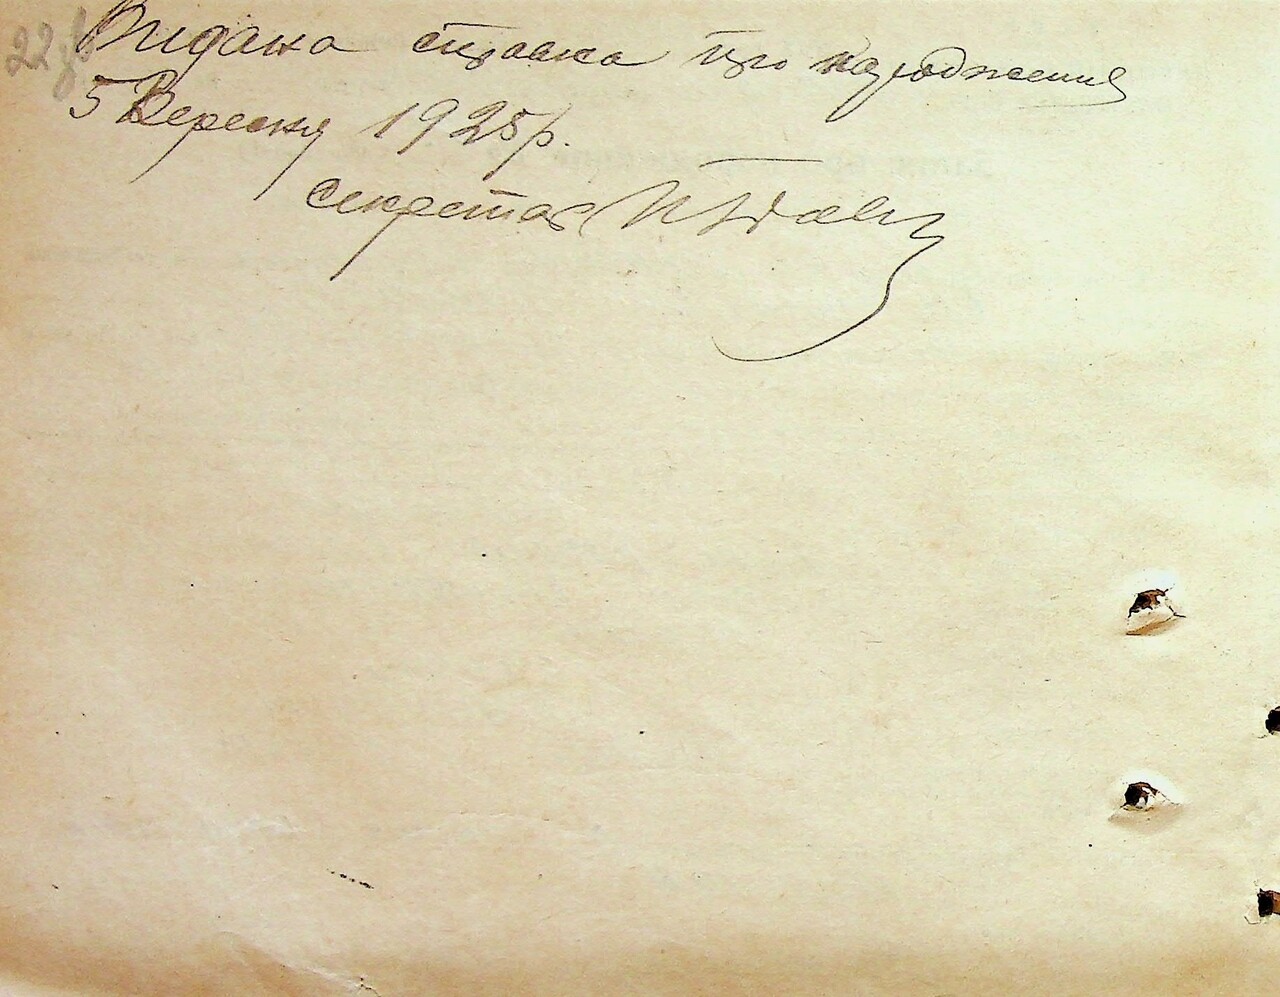 22 зв
Видана справка про народження
5 Вересня 1925 р.
секретар